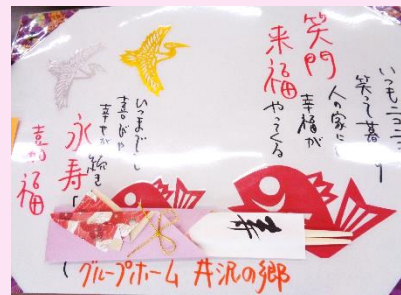 いつもニコニコ
笑って暮
人の家に
幸福が
やってくる
笑門
来福
いつまで
喜びや
幸せが
永寿
喜福
寿
グループホーム 井沢の郷